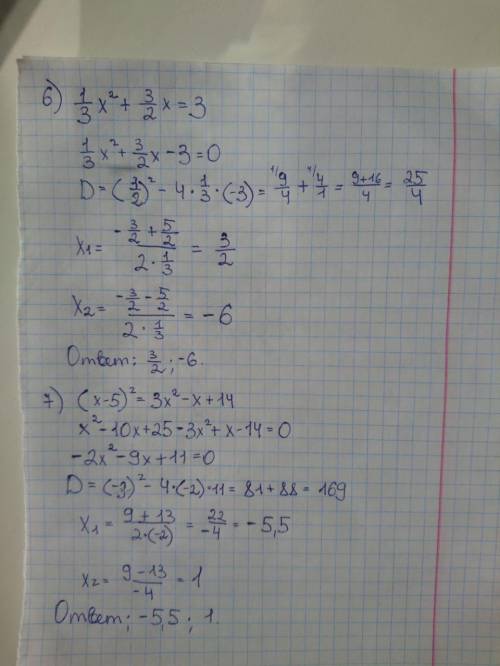 6) 1/3 x² + 3/2 x = 3
1/3 x² + 3/2 x - 3 = 0
D = (3/2)² - 4 · 1/3 · (-3) = ¹⁾9/4 + ⁴⁾4/1 = (9+16)/4 = 25/4
x₁ = (-3/2 + 5/2)/(2 · 1/3) = 3/2
x₂ = (-3/2 - 5/2)/(2 · 1/3) = -6
Ответ: 3/2 ; -6.
7) (x-5)² = 3x² - x + 14
x² - 10x + 25 - 3x² + x - 14 = 0
-2x² - 9x + 11 = 0
D = (-9)² - 4 · (-2) · 11 = 81 + 88 = 169
x₁ = (9 + 13)/(2 · (-2)) = 22/-4 = -5,5
x₂ = (9 - 13)/-4 = 1
Ответ: -5,5 ; 1.